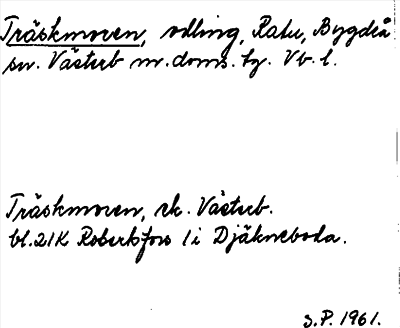 Träskmoren, odling, Ratu, Bygdeå
sn. Västerb m. doms. tg. Vb. l.
Träskmoren, ek. Västerb.
bl. 21K Robertsfors 1 i Djäkneboda.
S.P. 1961.